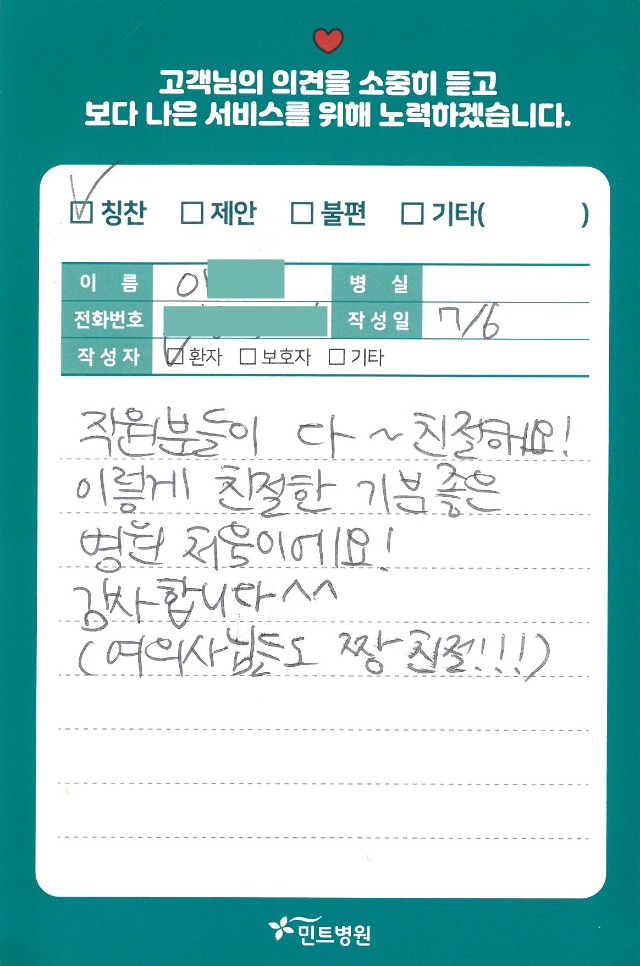 고객님의 의견을 소중히 듣고
보다 나은 서비스를 위해 노력하겠습니다.
☑ 칭찬 □ 제안 □ 불편 □ 기타( )
이 름 이 병 실
전화번호 작성일 7/6
작성자 ☑ 환자 □ 보호자 □ 기타
직원분들이 다 ~ 친절해요!
이렇게 친절한 기분좋은
병원 처음이에요!
감사합니다^^
(여의사님들도 짱 친절!!!)
민트병원